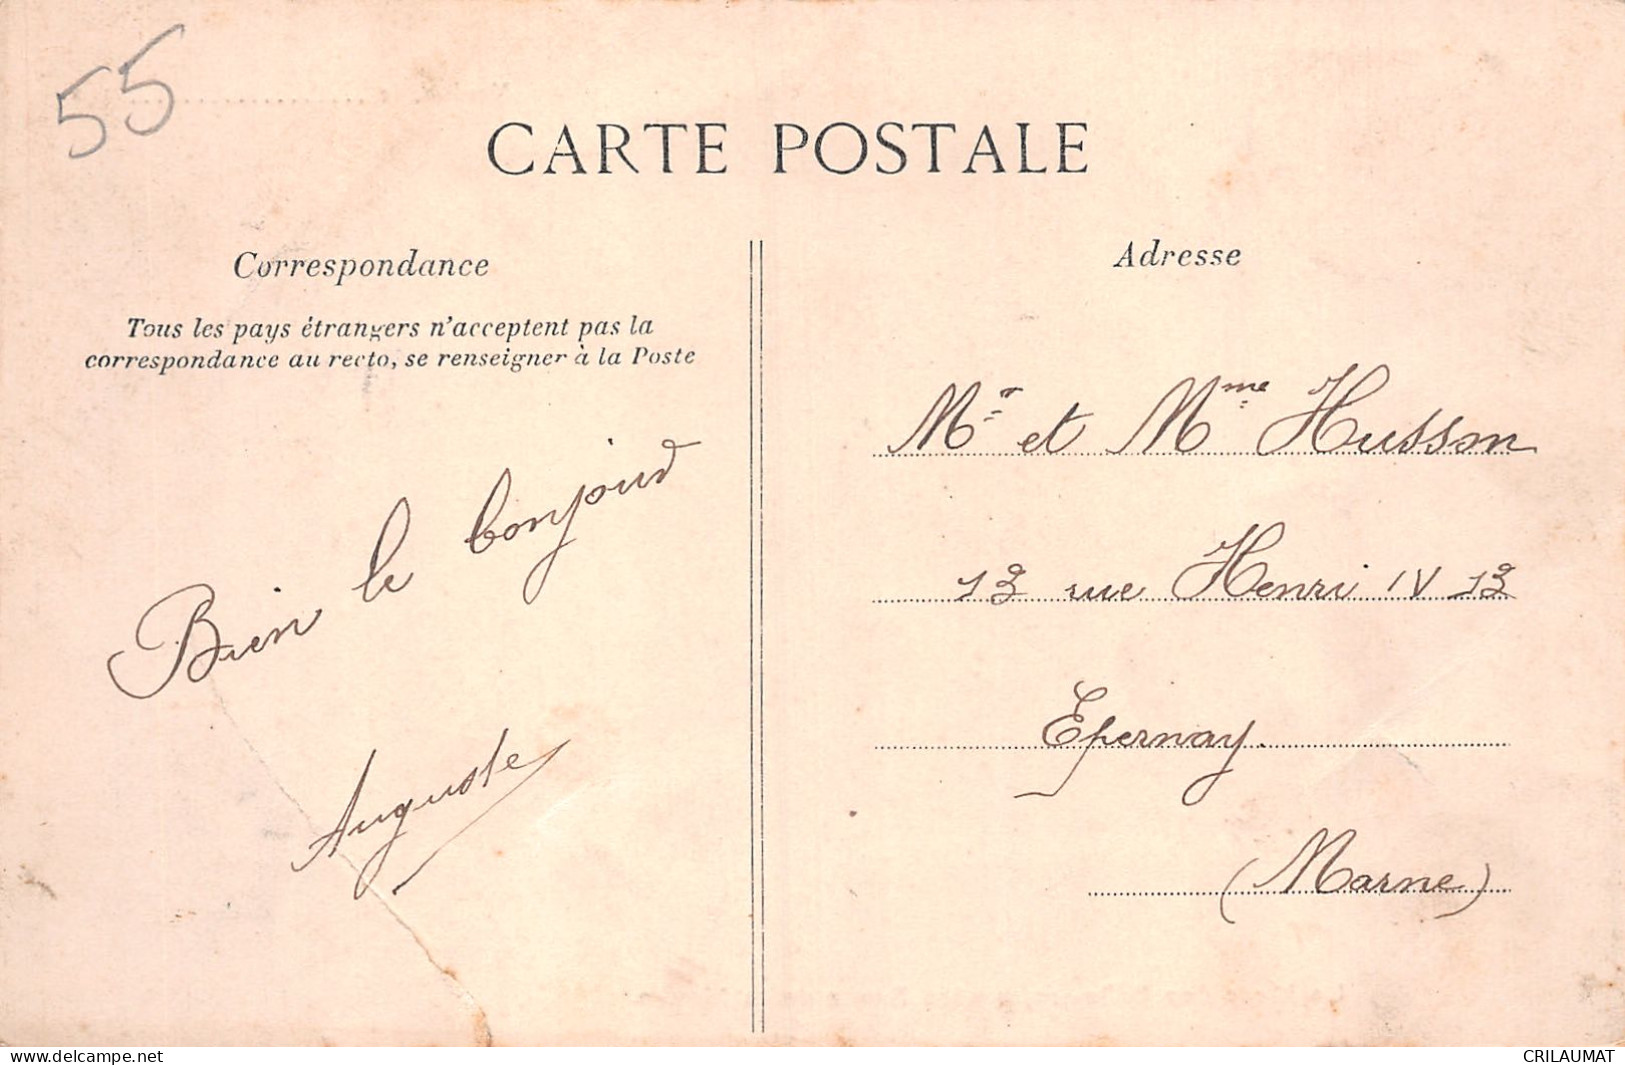 55
CARTE POSTALE
Correspondance
Tous les pays étrangers n'acceptent pas la
correspondance au recto, se renseigner à la Poste
Bien le bonjour
Auguste
Adresse
Mr et Mme Husson
13 rue Henri IV 13
Epernay.
(Marne)
www.delcampe.net
CRILAUMAT